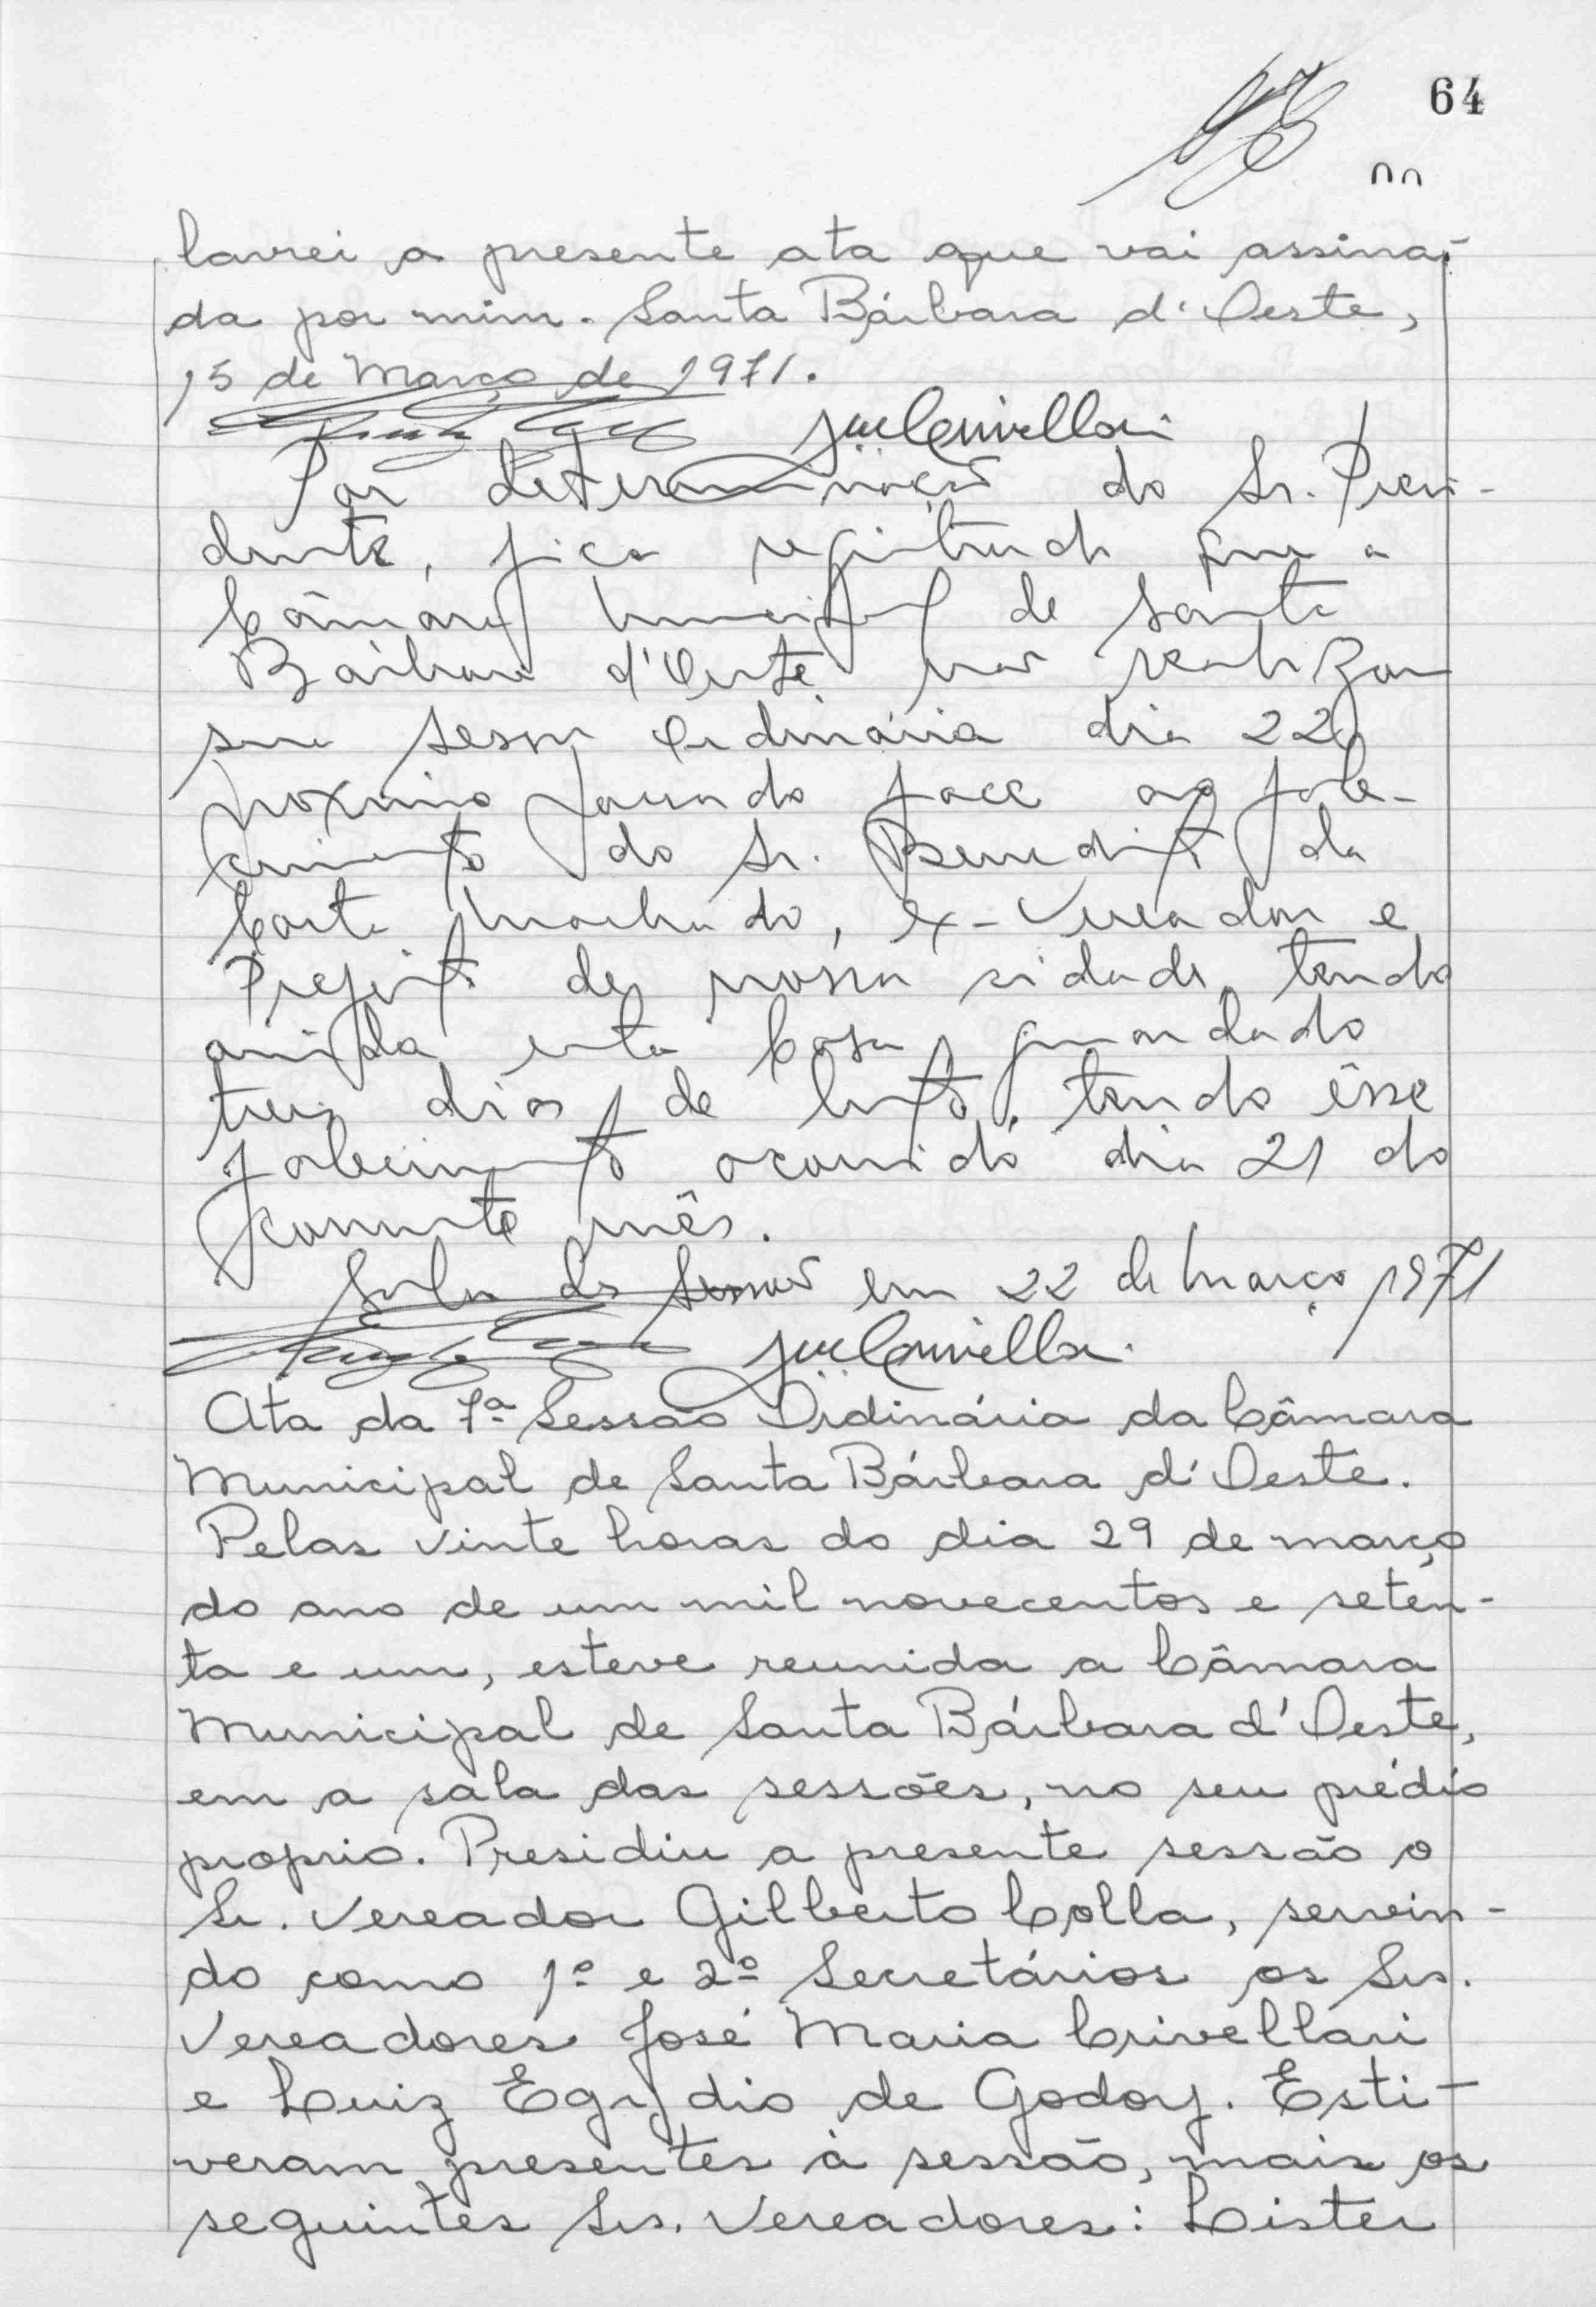 64
lavrei a presente ata que vai assina-
da por mim. Santa Bárbara d'Oeste,
15 de Março de 1971.
Por determinação do Sr. Presi-
dente, fica registrado que a
Câmara Municipal de Santa
Bárbara d'Oeste não realizou
sua sessão Ordinária dia 22
próximo passado face ao fale-
cimento do Sr. Benedito da
Costa Machado, ex-Vereador e
Prefeito de nossa cidade, tendo
ainda esta Casa guardado
treis dias de luto, tendo êsse
falecimento ocorrido dia 21 do
corrente mês.
Sala das Sessões em 22 de Março 1971
Ata da 7ª Sessão Ordinária da Câmara
Municipal de Santa Bárbara d'Oeste.
Pelas vinte horas do dia 29 de março
do ano de um mil novecentos e seten-
ta e um, esteve reunida a Câmara
Municipal de Santa Bárbara d'Oeste,
em a sala das sessões, no seu prédio
proprio. Presidiu a presente sessão o
Sr. Vereador Gilberto Colla, servin-
do como 1º e 2º Secretários os Srs.
Vereadores José Maria Crivellari
e Luiz Egydio de Godoy. Esti-
veram presentes à sessão, mais os
seguintes Srs. Vereadores: Lister